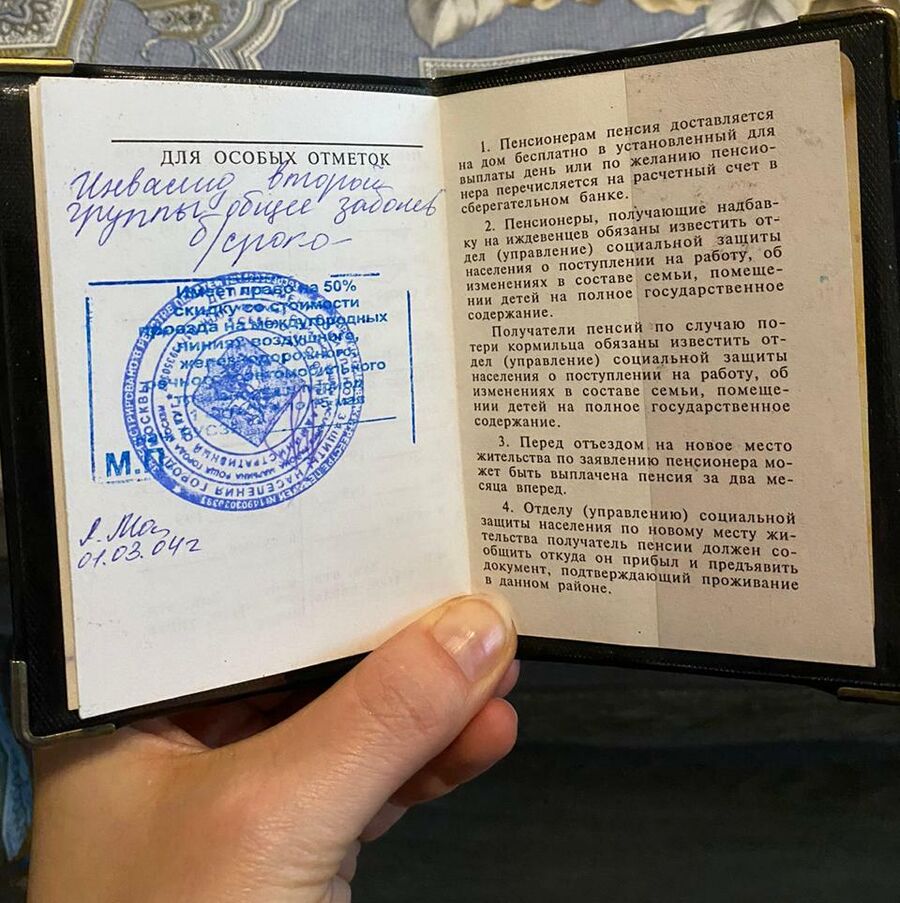 ДЛЯ ОСОБЫХ ОТМЕТОК
Инвалид второй
группы общее заболев
б/сроко
Имеет право на 50%
скидку со стоимости
проезда на междугородных
линиях воздушного,
железнодорожного,
речного и автомобильного
по 15 мая
М.П.
01.03.04г
1. Пенсионерам пенсия доставляется
на дом бесплатно в установленный для
выплаты день или по желанию пенсио-
нера перечисляется на расчетный счет в
сберегательном банке.
2. Пенсионеры, получающие надбав-
ку на иждевенцев обязаны известить от-
дел (управление) социальной защиты
населения о поступлении на работу, об
изменениях в составе семьи, помеще-
нии детей на полное государственное
содержание.
Получатели пенсий по случаю по-
тери кормильца обязаны известить от-
дел (управление) социальной защиты
населения о поступлении на работу, об
изменениях в составе семьи, помеще-
нии детей на полное государственное
содержание.
3. Перед отъездом на новое место
жительства по заявлению пенсионера мо-
жет быть выплачена пенсия за два ме-
сяца вперед.
4. Отделу (управлению) социальной
защиты населения по новому месту жи-
тельства получатель пенсии должен со-
общить откуда он прибыл и предъявить
документ, подтверждающий проживание
в данном районе.